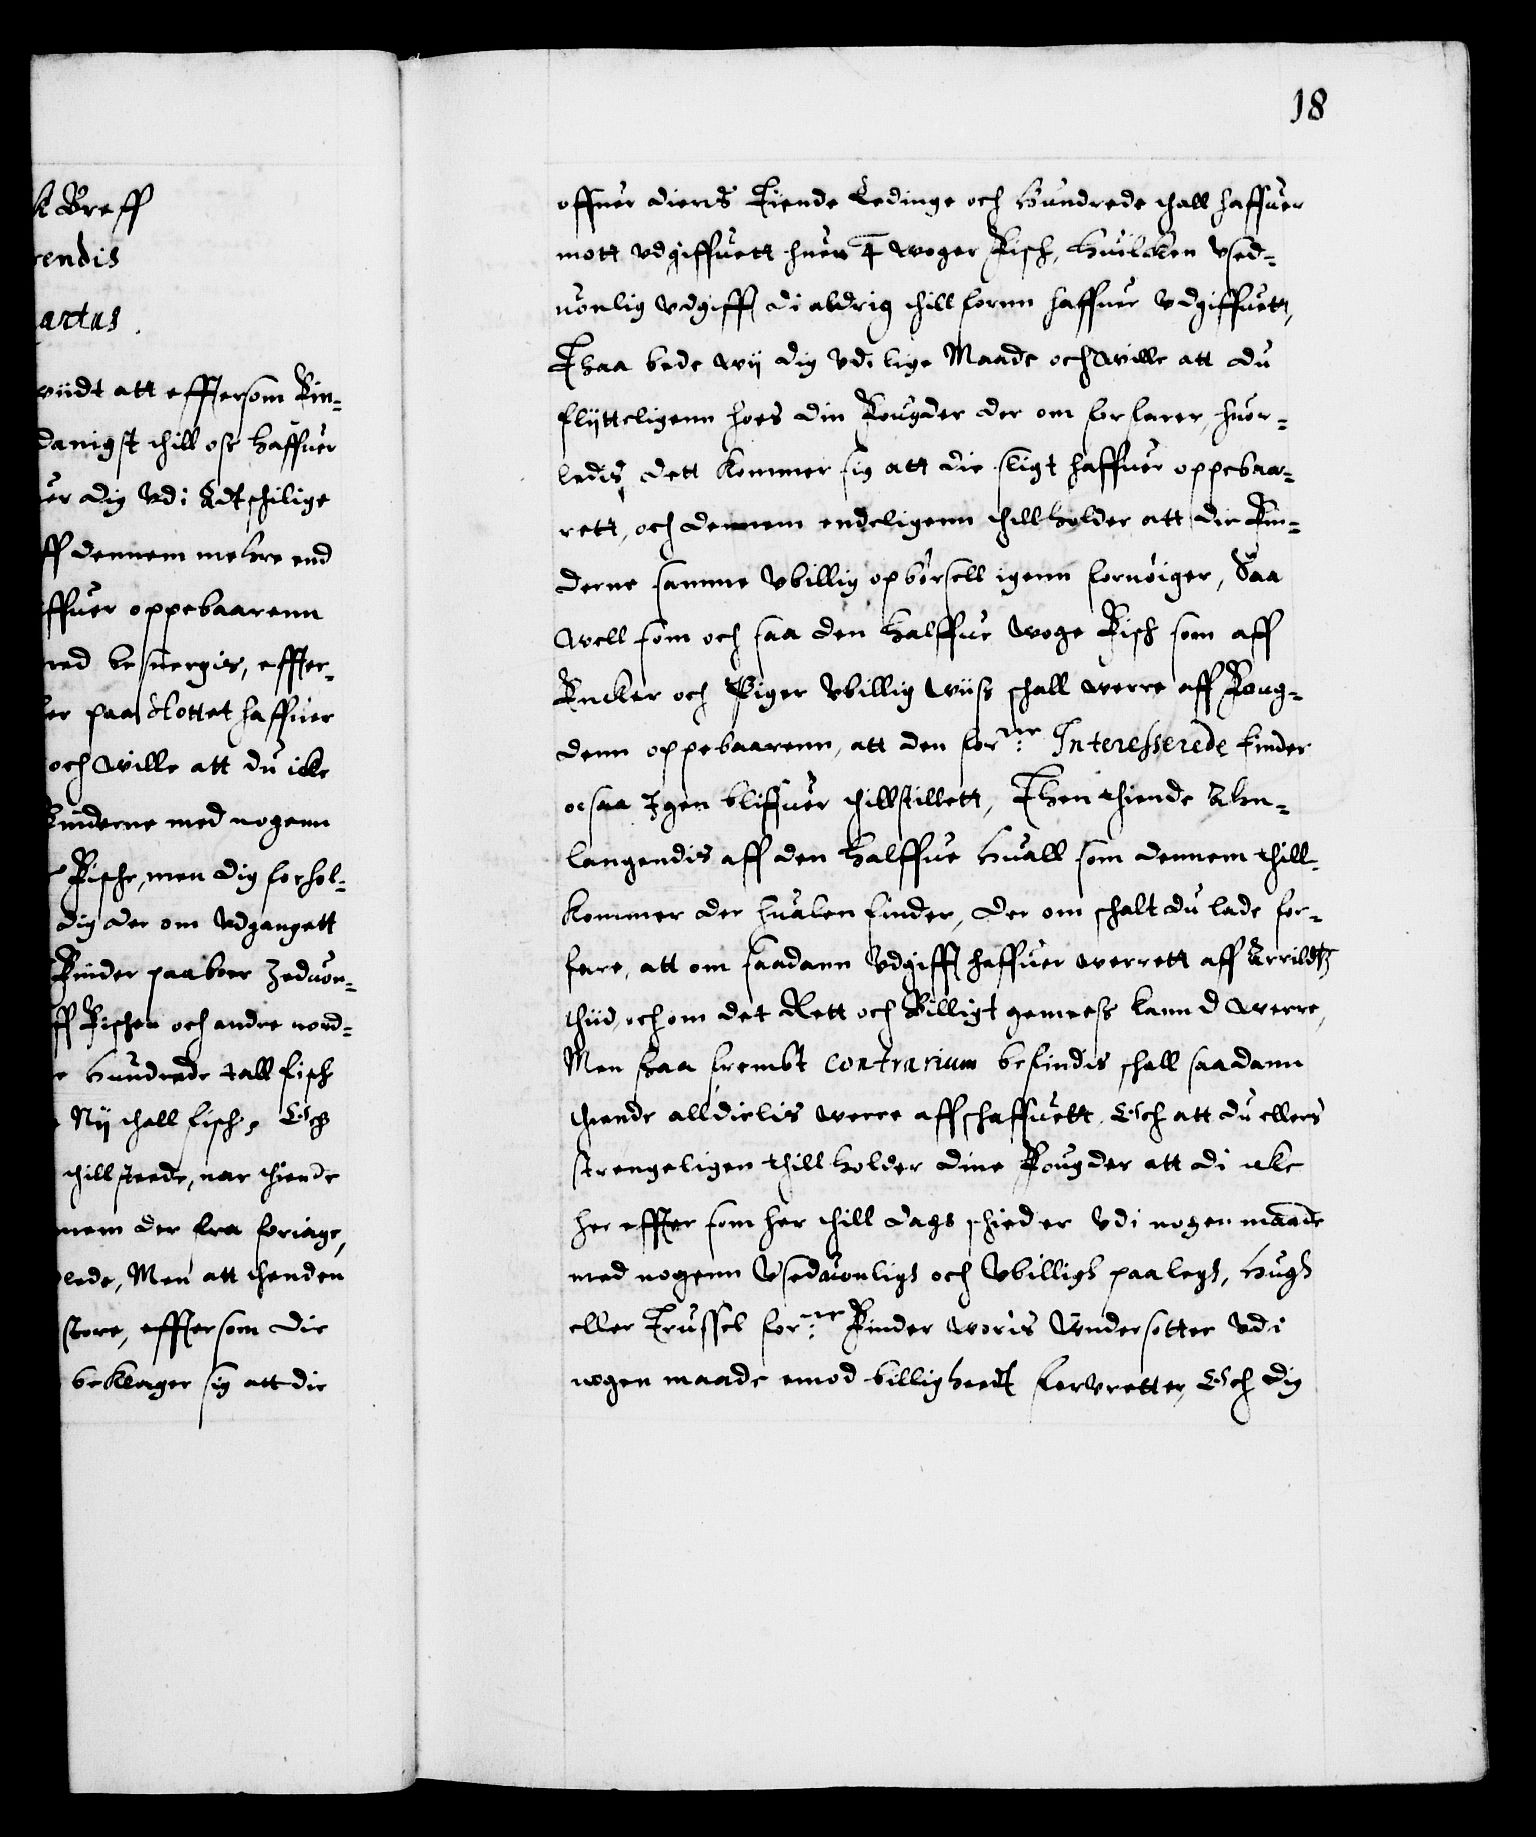 18
k Breff
rendis
artus.
viidt att efftersom Fin-
danigst thill ost haffuer
uer dig vdi Adtschilige
ff dennem mehre end
ffuer oppebaarenn
red besuergis, effter-
er paa slottet haffuer
och wille att du icke
Finderne med nogenn
Fische, men dig forhol-
dig der om vdgangett
Finder paa boer Zeduon-
ff Fischen och andre nord-
e hundrede tall fisch
Nij thall fisch, Och
thillstede, nar thiende
nem der fra foriage,
lede, Men att thenden
store, efftersom die
beklager sig att die
offuer dieris Tiende Ledinge och Hundrede thall haffuer
mott vdgiffuett huer 4 woger Fisch, Huilcken vsed-
uonlig vdgifft di aldrig thill fornn haffuer vdgiffuett,
Thaa bede wij dig vdi lige Maade och wille att du
flijtteligenn hoes din Fougder der om forfarer, huor-
ledis dett kommer sig att die sligt haffuer oppebaa-
rett, och dennem endeligenn thillholder att die Fin-
derne samme vbillig opbørsell igenn fornøiger, Saa
well som och saa den halffue woge Fisch som aff
Encker och Piger vbillig wiiss schall werre aff Foug-
denn oppebaarenn, att den forne Interesserede finder
ocsaa Igen bliffuer thillstillett, Then thiende Ahn-
langendis aff den halffue Huall som dennem thill-
kommer der hualen finder, der om schalt du lade for-
fare, att om saadann vdgifft haffuer werrett aff Arrildtz
thiid, och om det Rett och Billigt gemeess kannd werre,
Men saa frembt contrarium befindis schall saadann
thiende alldielis werre affschaffuett. Och att du ellers
strengeligen thill holder dine Fougder att di icke
her effter som her thill dags schied er vdi nogen maade
med nogenn vseduonligs och vbilligs paalegs, hugs
eller Trussel forne Finder woris Vndersotter vdi
nogen maade emod billigheedt forvretter, Och dig